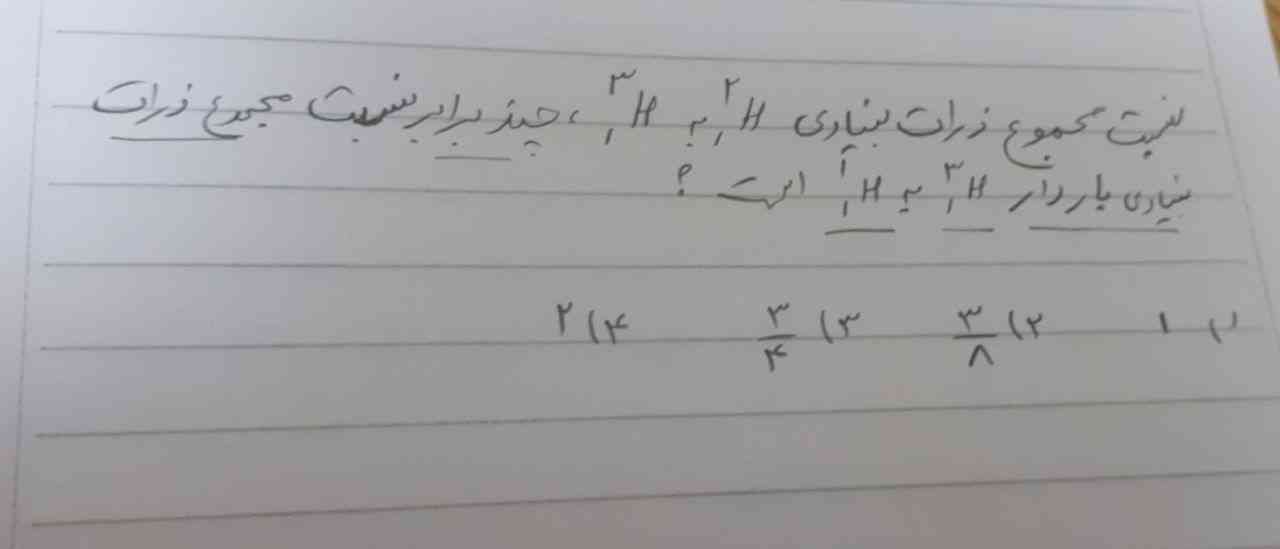 نسبت مجموع ذرات بنیادی ²₁H به ³₁H، چند برابر نسبت مجموع ذرات
بنیادی باردار ³₁H به ¹₁H است ؟
۱) ۱ ۲) ۳/۸ ۳) ۳/۴ ۴) ۲